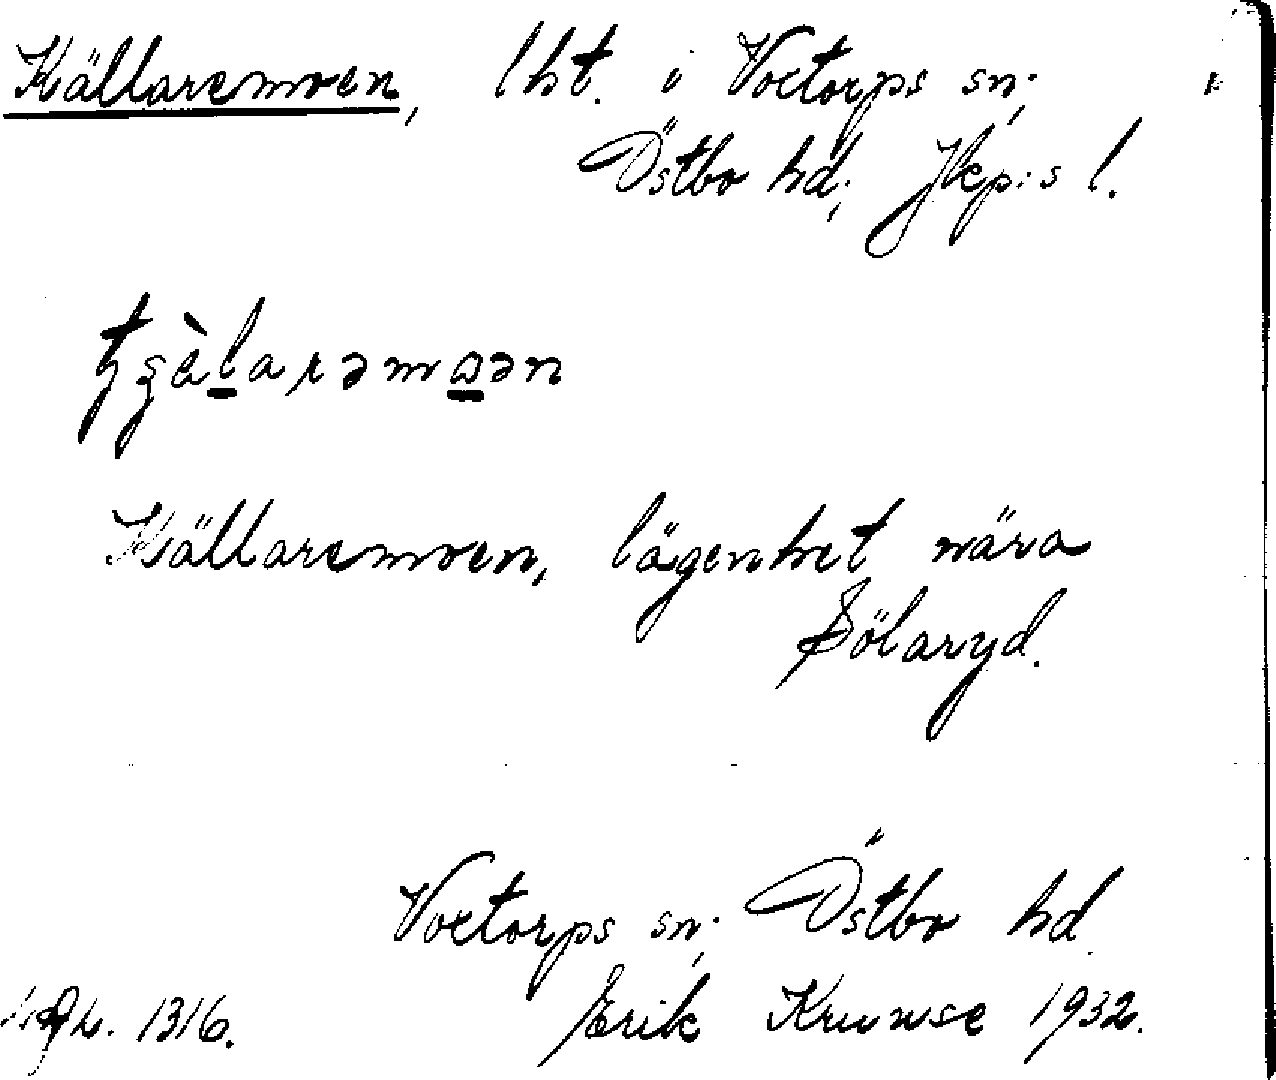 Källaremoen, lht. i Voxtorps sn;
Östbo hd; Jkp:s l.
Källaremoen, lägenhet nära
Sölaryd.
Voxtorps sn; Östbo hd.
1316. Erik Kruuse 1932.